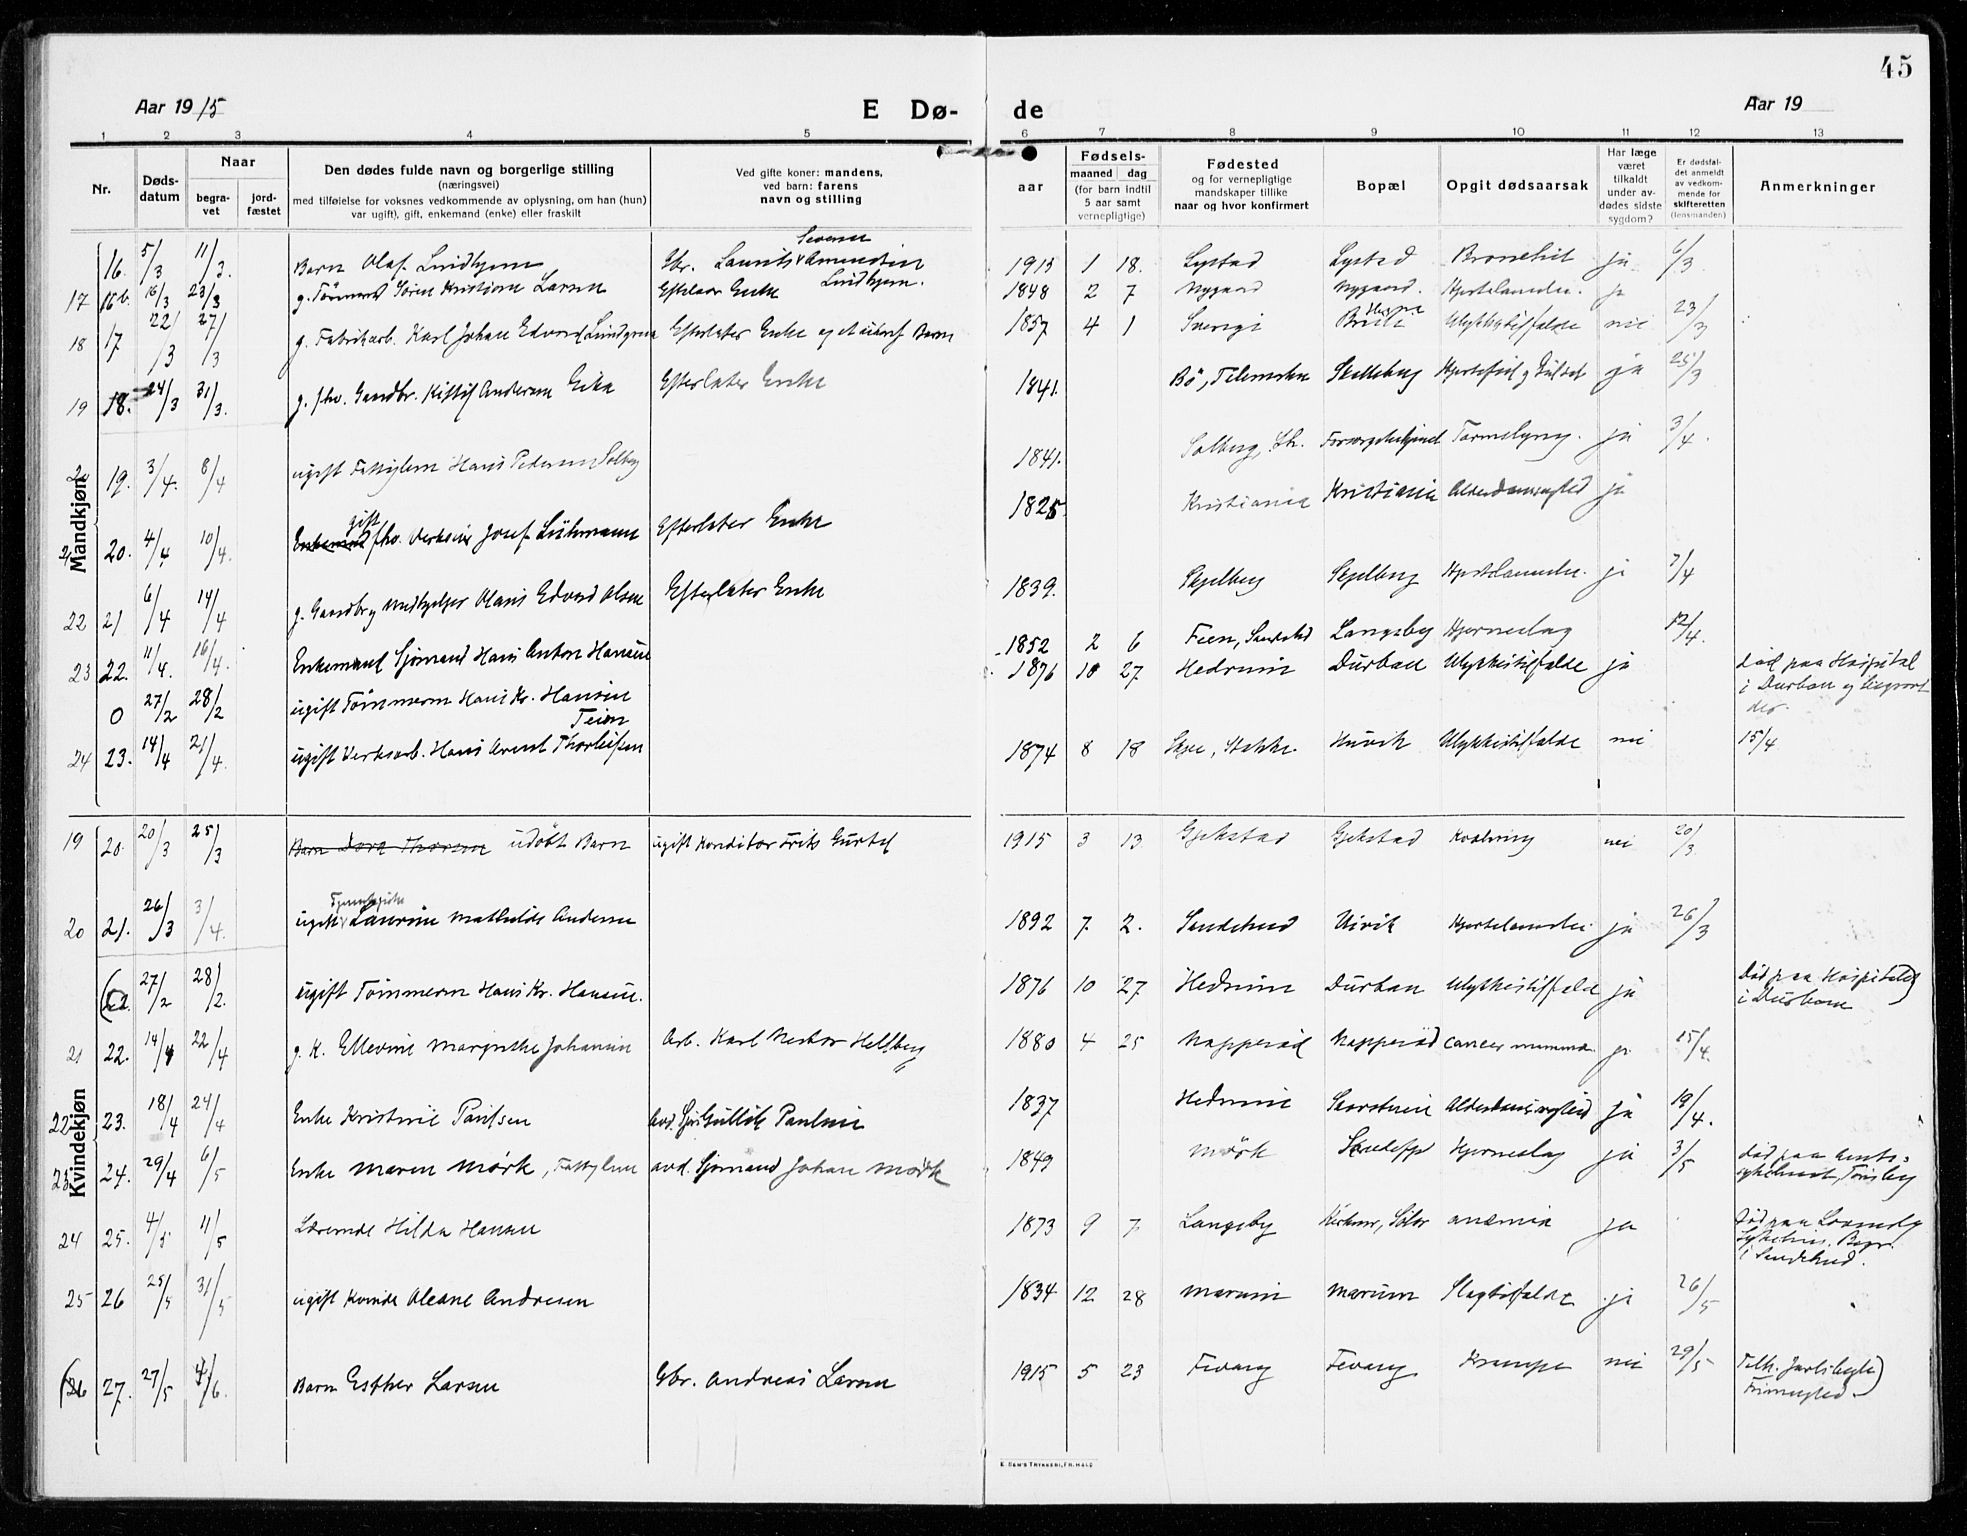 45
Aar 1915
E Dø-
de
Aar 19
1 2 3 4 5 6 7 8 9 10 11 12 13
Nr.
Døds-
datum
Naar
begra-
vet
jord-
fæstet
Den dødes fulde navn og borgerlige stilling
(næringsvei)
med tilføielse for voksnes vedkommende av oplysning, om han (hun)
var ugift), gift, enkemand (enke) eller fraskilt
Ved gifte koner: mandens,
ved barn: farens
navn og stilling
aar
Fødsels-
maaned dag
(for barn indtil
5 aar samt
vernepligtige)
Fødested
og for vernepligtige
mandskaper tillike
naar og hvor konfirmert
Bopæl
Opgit dødsaarsak
Har læge
været
tilkaldt
under av-
dødes sidste
sygdom?
Er dødsfal-
det anmeldt
av vedkom-
mende for
skifteretten
(lensmanden)
Anmerkninger
Mandkjøn
16. 5/3 11/3. Barn Olaf Lindhjem Gbr. Laurits Amundsen Lindhjem. 1915 1 18. Lystad Lystad Bronchit ja 6/3
17 16b. 16/3 23/3 g. Tømmerm Søren Kristian Larsen Efterlater Enke 1848 2 7 Nygaard Nygaard. Hjertelammelse. ja
18 17 22/3 27/3 g. Fabrikarb. Karl Johan Edvard Lundgren Efterlater Enke og et Barn 1857 4 1 Sverige Ulykkestilfælde nei 23/3
19 18. 24/3 31/3. g. fhv. Gaardbr. Kittil Andersen Eika Efterlater Enke 1841. Bø, Telemarken Skelleberg Hjertefeil ja 25/3
20 19. 3/4. 8/4 ugift Fattiglem Hans Pedersen Solberg 1841. Solberg, Forsørgelseshjemmet ja 3/4.
21 20. 4/4 10/4. Enkemand gift fhv. Josef Lühmann Efterlater Enke 1825 Kristiania Kristiania Alderdomssvaghed ja
22 21 6/4 14/4 g. Gaardbr og Olaus Edvard Olsen Efterlater Enke 1839. Skjelberg Skjelberg Hjertelammelse. ja 7/4
23 22. 11/4. 16/4. Enkemand Sjømand Hans Anton Hansen 1852 2 6 Feen, Langeby Hjerneslag 12/4.
0 27/2 28/2 ugift Tømmerm Hans Kr. Hansen 1876 10 27 Hedrum Durban Ulykkestilfælde ja død paa Hospital
i Durban og begravet
der.
24 23. 14/4 21/4. ugift Verksarb. Hans Arent Thorleifsen Teien 1874 8 18 Stokke. Huvik Ulykkestilfælde nei 15/4
Kvindekjøn
19 20. 20/3 25/3 Barn Dora Thoresen udøbt Barn ugift Konditor Frits Gurtel 1915 3 13 Gjekstad Gjekstad Kvælning nei 20/3
20 21. 26/3 3/4. ugift Tjenestepike Laurine Mathilde Andersen 1892 7. 2. Sandeherred Virik Hjertelammelse. ja 26/3
(22. 27/2 28/2. ugift Tømmerm Hans Kr. Hansen. 1876 10 27 Hedrum Durban Ulykkestilfælde ja Død paa Hospitalet
i Durban)
21 22. 14/4 22/4 g. K. Ellevine Margrethe Johansen Arb. Karl Nestor Hellberg 1880 4 25 Napperød Napperød Cancer mamma ja 15/4.
22 23. 18/4 24/4 Enke Kristine Paulsen avd. Gullik Paulsen 1837 Hedrum Skorstein Alderdomssvaghed ja 19/4.
23 24. 29/4 6/5 Enke Maren Mørk, Fattiglem avd. Sjømand Johan Mørk 1849 Mørk Sandefj Hjerneslag ja 3/5 død paa Amts-
sykehuset, Tønsberg
24 25. 4/5 11/5 Lærerinde Hilda Hansen 1873 9 7 Langeby Kirkenær, Solør anæmia ja død paa
Sykehus. Begr.
i Sandeherred.
25 26 25/5 31/5 ugift Kvinde Oleane Andresen 1834 12 28 Marum Marum Slagtilfælde ja 26/5
(26 27. 27/5 4/6. Barn Esther Larsen Gbr. Andreas Larsen 1915 5 23 Fevang Fevang Krampe nei 29/5 Tilh. Jarlsberg
Frimenighed)
E. SEM'S TRYKKERI, FR.HALD